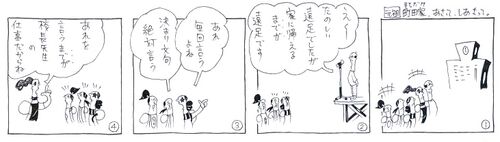 町田家、あさって、しあさって。
①
え〜
たのしい
遠足でしたが
家に帰える
までが
遠足です
②
あれ
毎回言う
よね
決まり文句
絶対言う
③
あれを
言うまでが
校長先生
の
仕事だからね
④